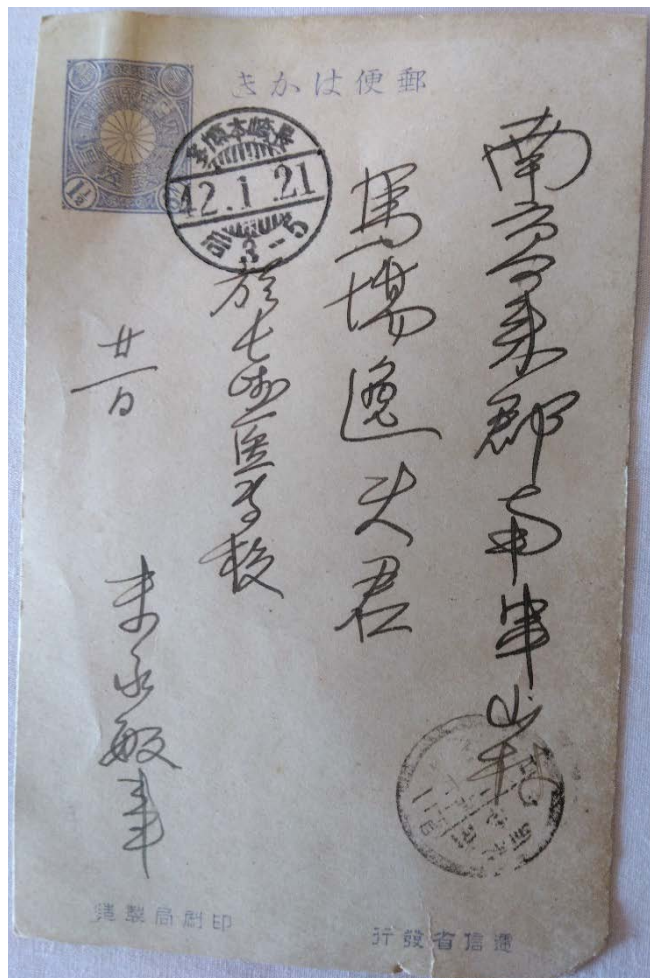 郵便はかき
1½
42.1.21
3-5
南高来郡南串山村
馬場逸夫君
於長崎医専校
廿一日
末永敏事
遞信省發行
印刷局製造